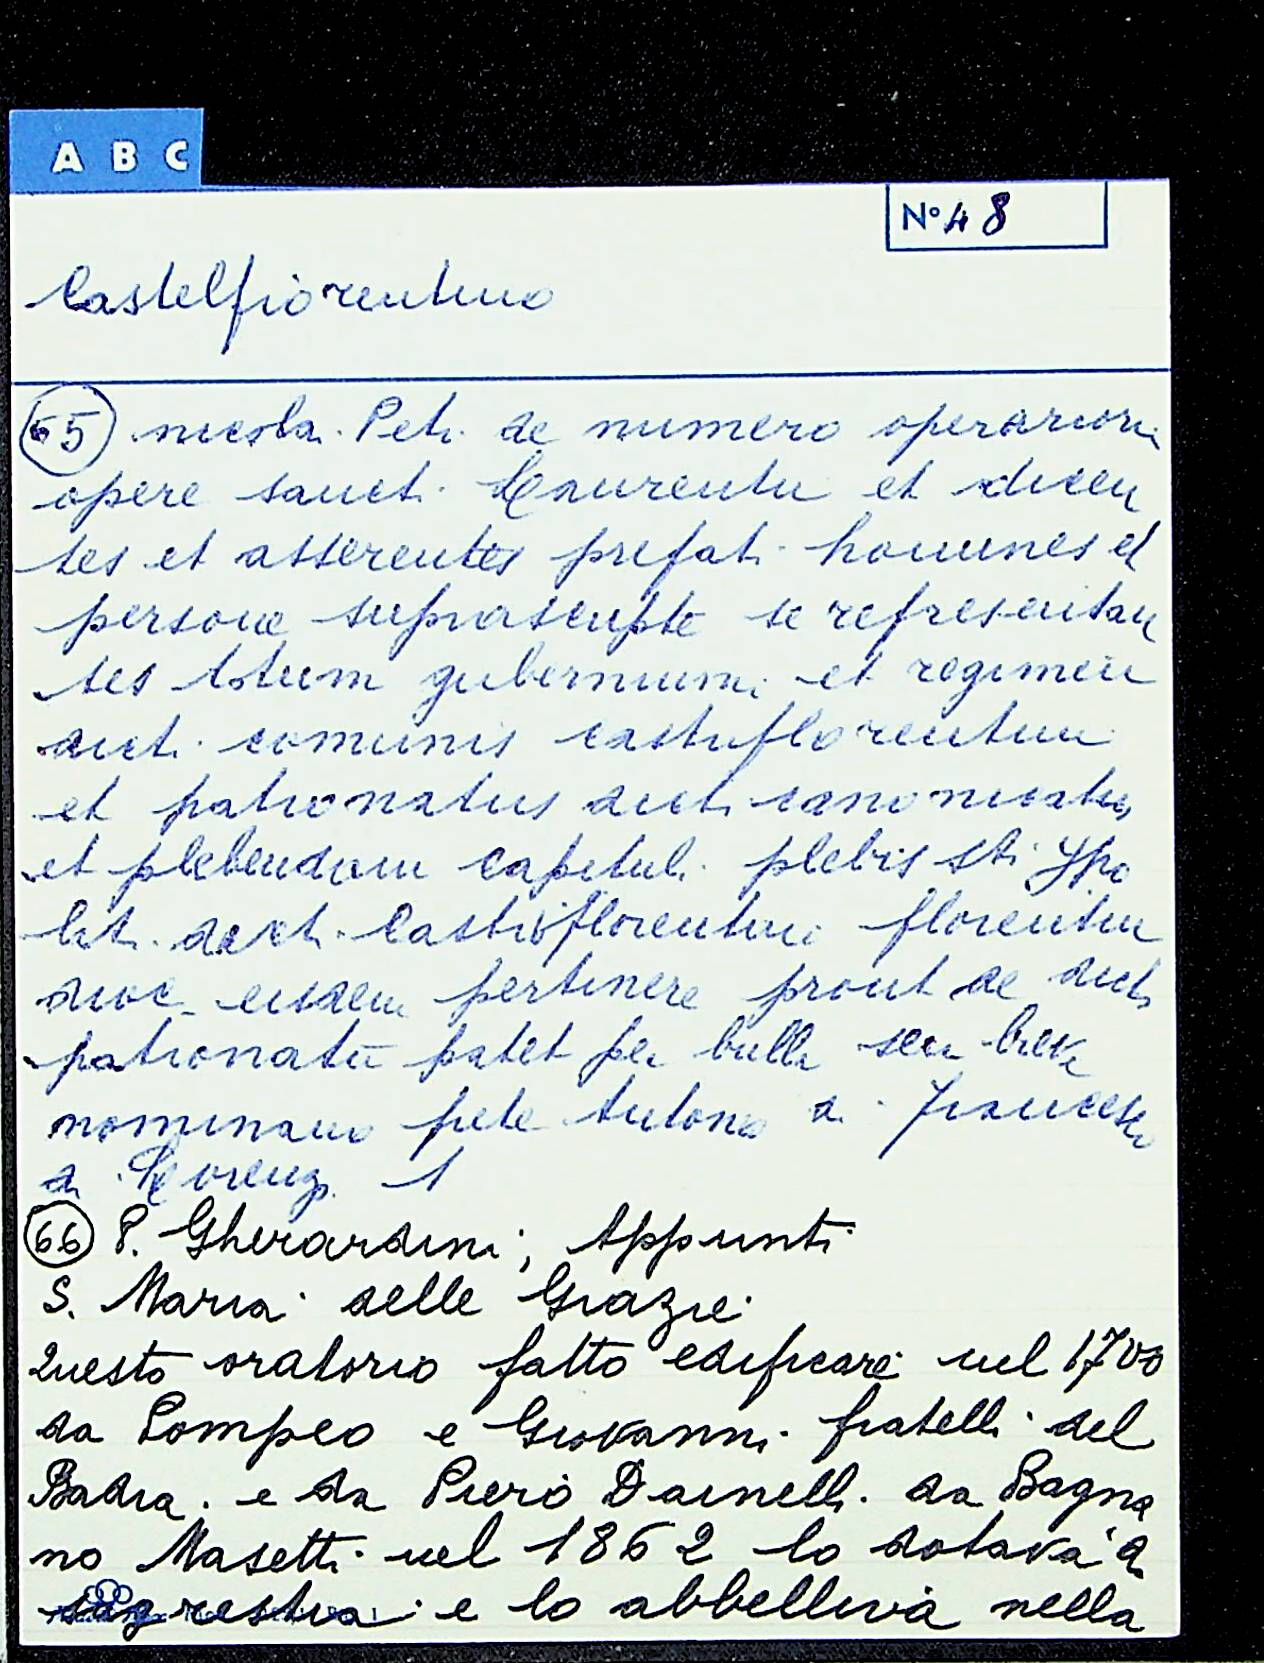 A B C
N° 48
Castelfiorentino
65 nicola Petri de numero operariorum
opere sancti Laurentii et dicen
tes et asserentes prefati homines et
persone suprascripte se representan
tes totum gubernium et regimen
dicti comunis castriflorentini
et patronatus dicti canonicatus
et plebendam capituli plebis sti Ypo
liti dicti Castriflorentini florentin
dioc eisdem pertinere prout de dicti
patronatu patet per bulla seu breve
nominano prete Antonio di Francesco
di Lorenzo 1
66 P. Gherardini, Appunti
S. Maria delle Grazie
Questo oratorio fatto edificare nel 1700
da Pompeo e Giovanni fratelli del
Badia e da Piero Dainelli da Bagna
no Masetti nel 1862 lo dotava di
sagrestia e lo abbelliva nella